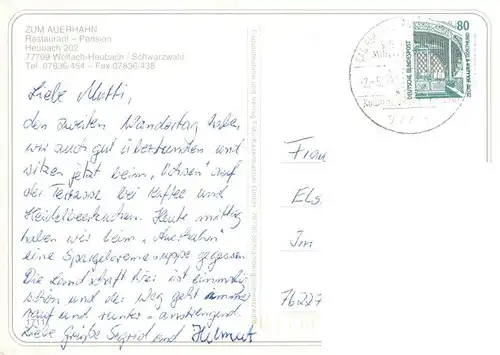 ZUM AUERHAHN
Restaurant - Pension
Heubach 202
77709 Wolfach-Heubach / Schwarzwald
Tel. 07836/454 – Fax 07836/438
Liebe Mutti,
den zweiten Wandertag haben
wir auch gut überstanden und
sitzen jetzt beim „Ochsen" auf
der Terrasse bei Kaffee und
Heidelbeerkuchen. Heute mittag
haben wir beim „Auerhahn"
eine Spargelcremesuppe gegessen.
Die Landschaft hier ist einmalig
schön und der Weg geht immer
rauf und runter - anstrengend.
Liebe Grüße Sigrid und Helmut
1731
80
DEUTSCHE BUNDESPOST
ZECHE ZOLLERN II DORTMUND
Frau
Els
Im
76227